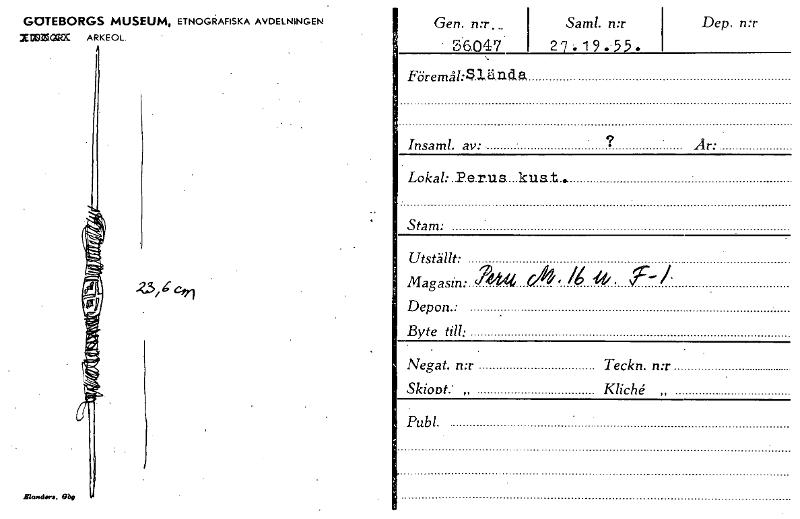 GÖTEBORGS MUSEUM, ETNOGRAFISKA AVDELNINGEN
ARKEOL.
23,6 cm
Elanders, Gbg
Gen. n:r Saml. n:r Dep. n:r
36047 27.19.55.
Föremål: Slända
Insaml. av: ? År:
Lokal: Perus kust.
Stam:
Utställt:
Magasin: Peru M. 16 u. F-1.
Depon.:
Byte till:
Negat. n:r Teckn. n:r
Skiopt. „ Kliché „
Publ.